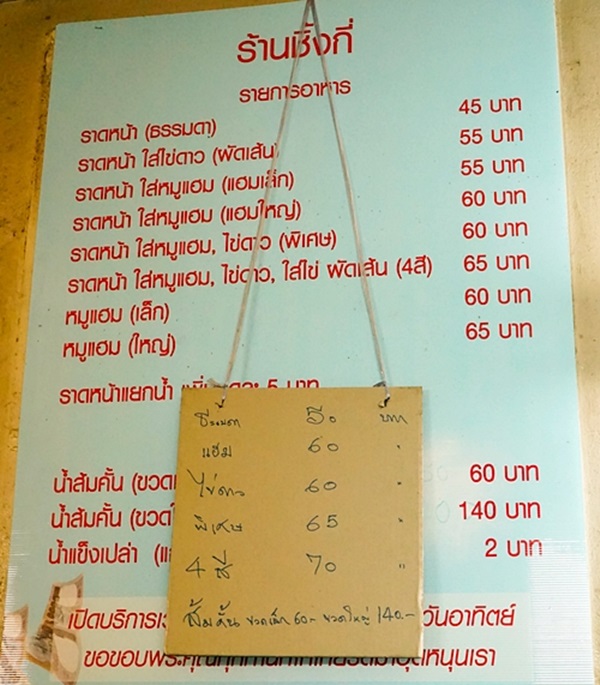 ร้านชิ้งกี่
รายการอาหาร
ราดหน้า (ธรรมดา) 45 บาท
ราดหน้า ใส่ไข่ดาว (ผัดเส้น) 55 บาท
ราดหน้า ใส่หมูแฮม (แฮมเล็ก) 55 บาท
ราดหน้า ใส่หมูแฮม (แฮมใหญ่) 60 บาท
ราดหน้า ใส่หมูแฮม, ไข่ดาว (พิเศษ) 60 บาท
ราดหน้า ใส่หมูแฮม, ไข่ดาว, ใส่ไข่ ผัดเส้น (4สี) 65 บาท
หมูแฮม (เล็ก) 60 บาท
หมูแฮม (ใหญ่) 65 บาท
ราดหน้าแยกน้ำ 5 บาท
น้ำส้มคั้น 60 บาท
น้ำส้มคั้น 140 บาท
น้ำแข็งเปล่า 2 บาท
เปิดบริการ วันอาทิตย์
ขอขอบพระคุณ อุดหนุนเรา
ธรรมดา 50 บาท
แฮม 60 "
ไข่ดาว 60 "
พิเศษ 65 "
4 สี 70 "
ส้มคั้น ขวดเล็ก 60- ขวดใหญ่ 140.-